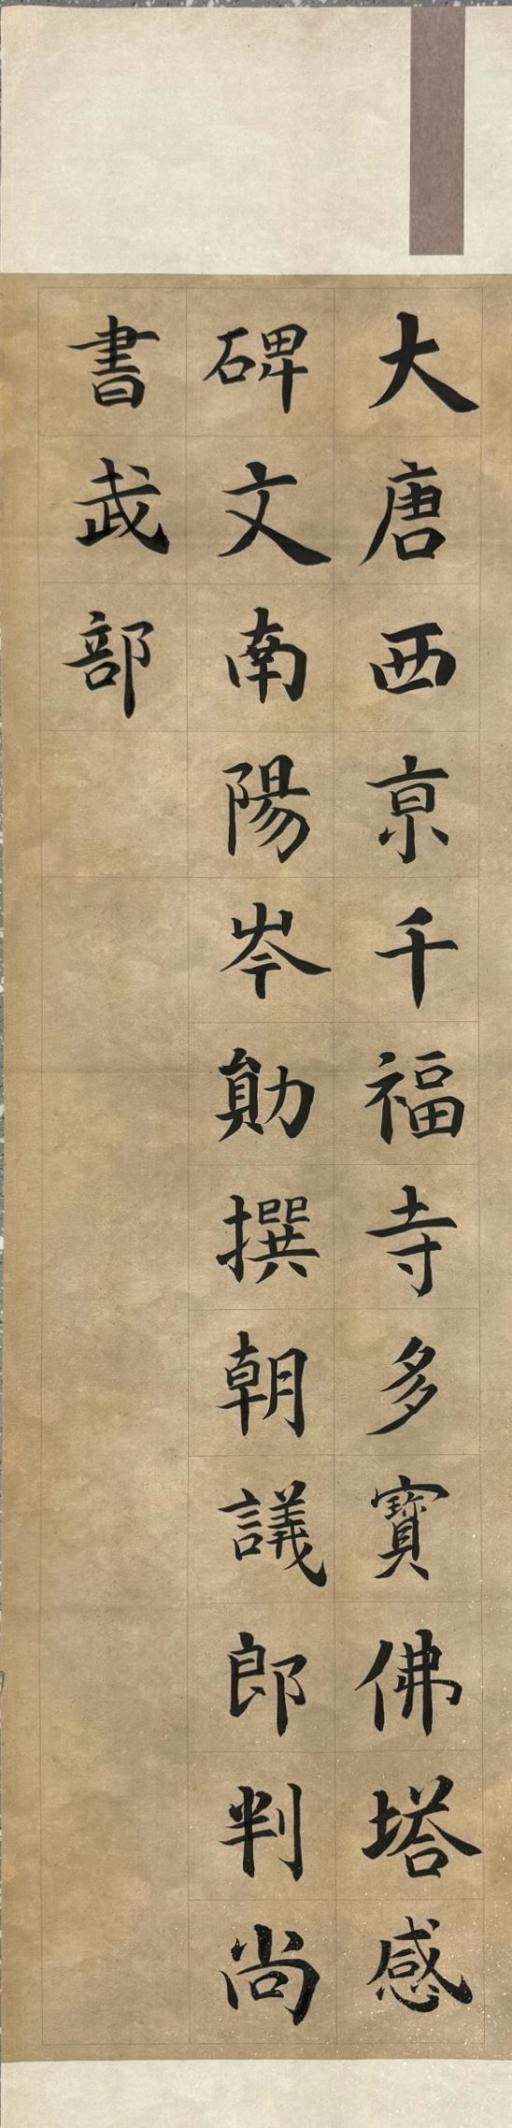 大唐西京千福寺多寶佛塔感
碑文南陽岑勛撰朝議郎判尚
書武部